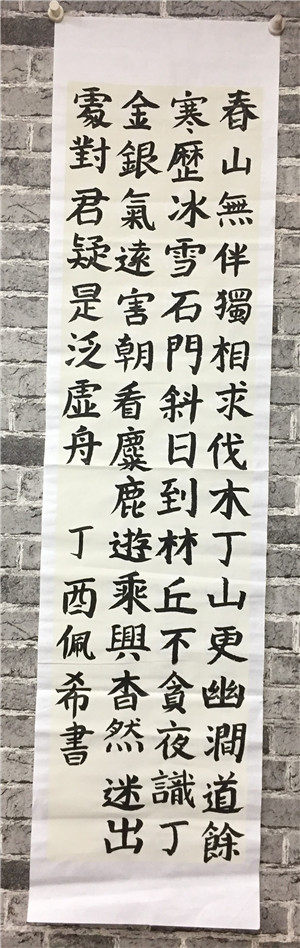 春山無伴獨相求伐木丁山更幽澗道餘
寒歷冰雪石門斜日到材丘不貪夜識丁
金銀氣遠害朝看麋鹿遊乘興杳然迷出
處對君疑是泛虛舟 丁酉佩希書